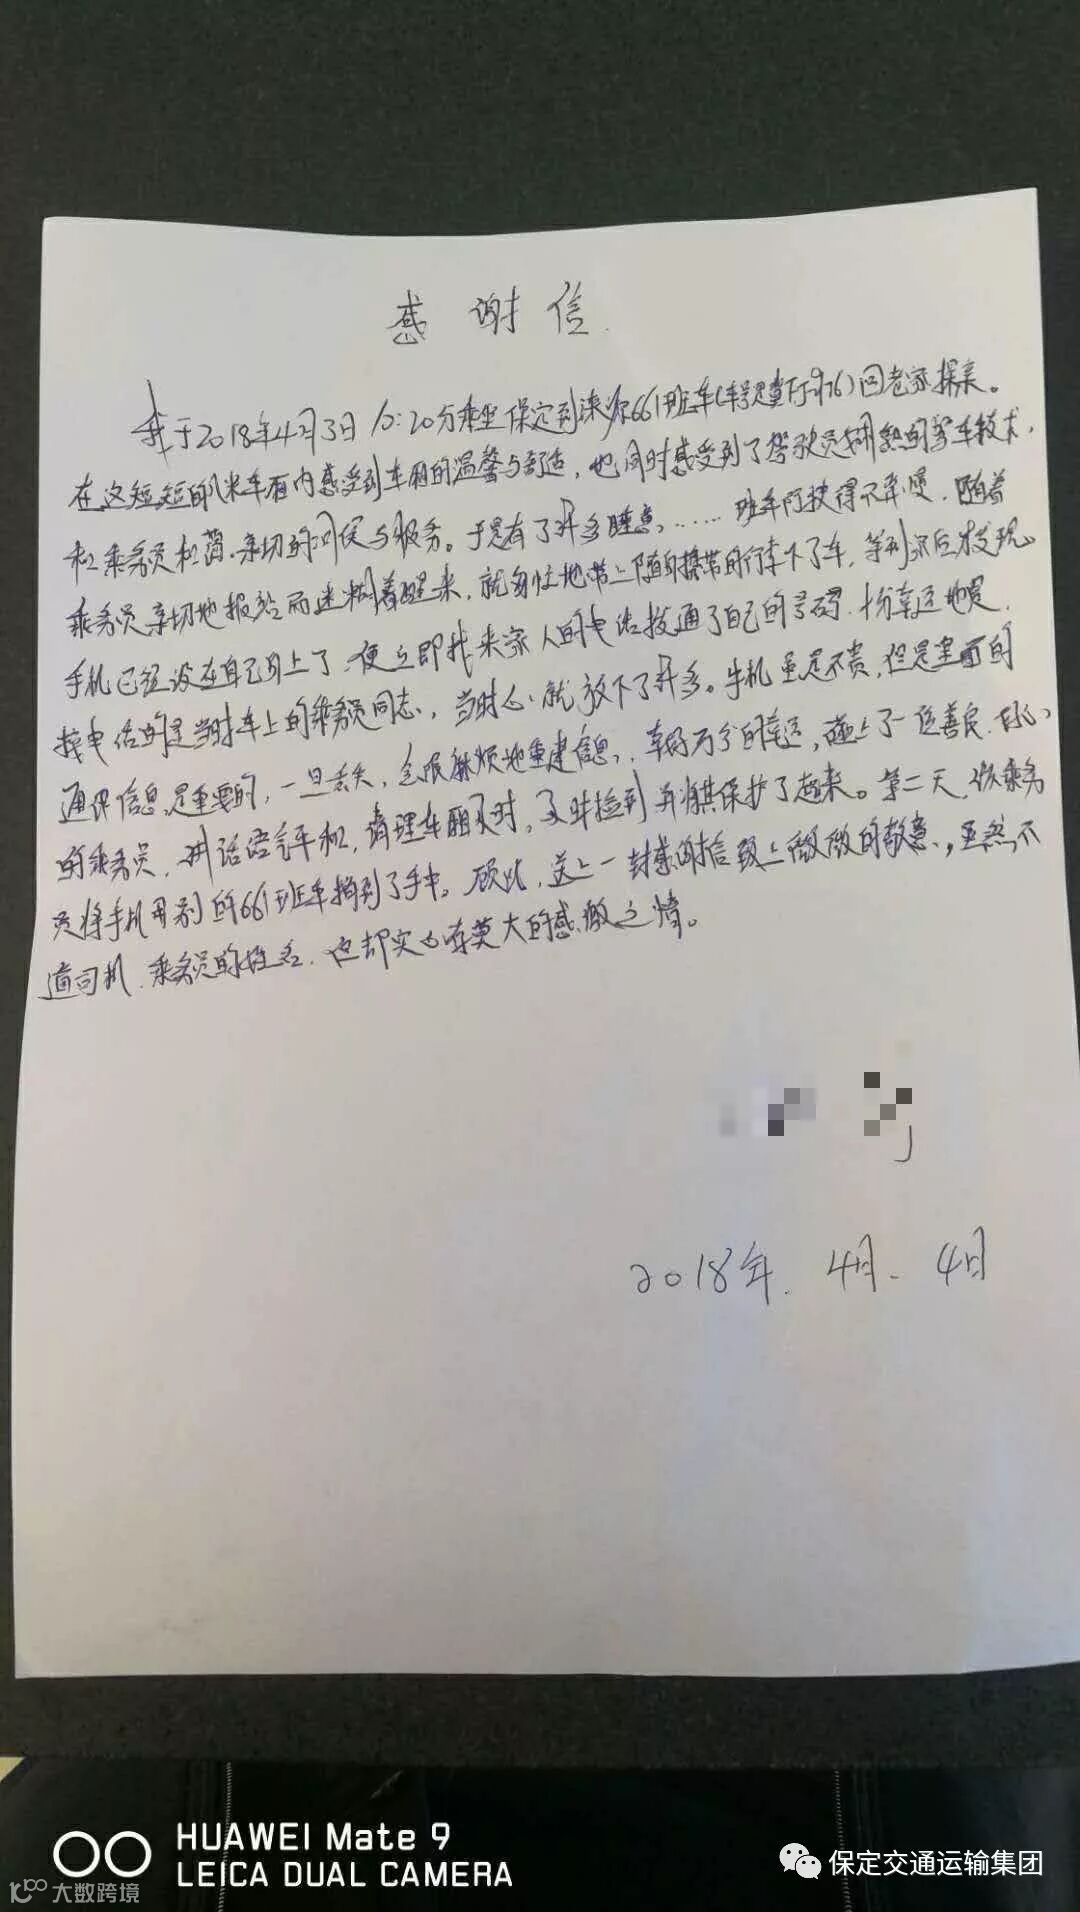 感谢信.
我于2018年4月3日10:20分乘坐保定到涞源661班车(车号冀FJ976)回老家探亲。
在这短短的八米车厢内感受到车厢的温馨与舒适,也同时感受到了驾驶员娴熟的驾车技术,
和乘务员和蔼.亲切的问候与服务。于是有了许多睡意,……班车开得不紧慢.随着
乘务员亲切地报站而迷糊着醒来,就匆忙地带上随身携带的行李下了车,等到家后才发现
手机已经没在自己身上了.便立即找来家人的电话拨通了自己的号码.十分幸运地是.
接电话的是当时车上的乘务员同志,当时心就放下了许多。手机虽是不贵,但是里面的
通讯信息是重要的,一旦丢失,会很麻烦地重建信息,幸好万分的幸运,碰上了一位善良.
的乘务员.讲话语气平和,清理车厢及时,及时捡到并将其保护了起来。第二天.该乘务
员将手机用别的661班车捎到了手中。顾此.送上一封感谢信致上微微的敬意,虽然不
道司机.乘务员的姓名.也却实心存莫大的感激之情。
2018年.4月.4日
HUAWEI Mate 9
LEICA DUAL CAMERA
保定交通运输集团
大数跨境